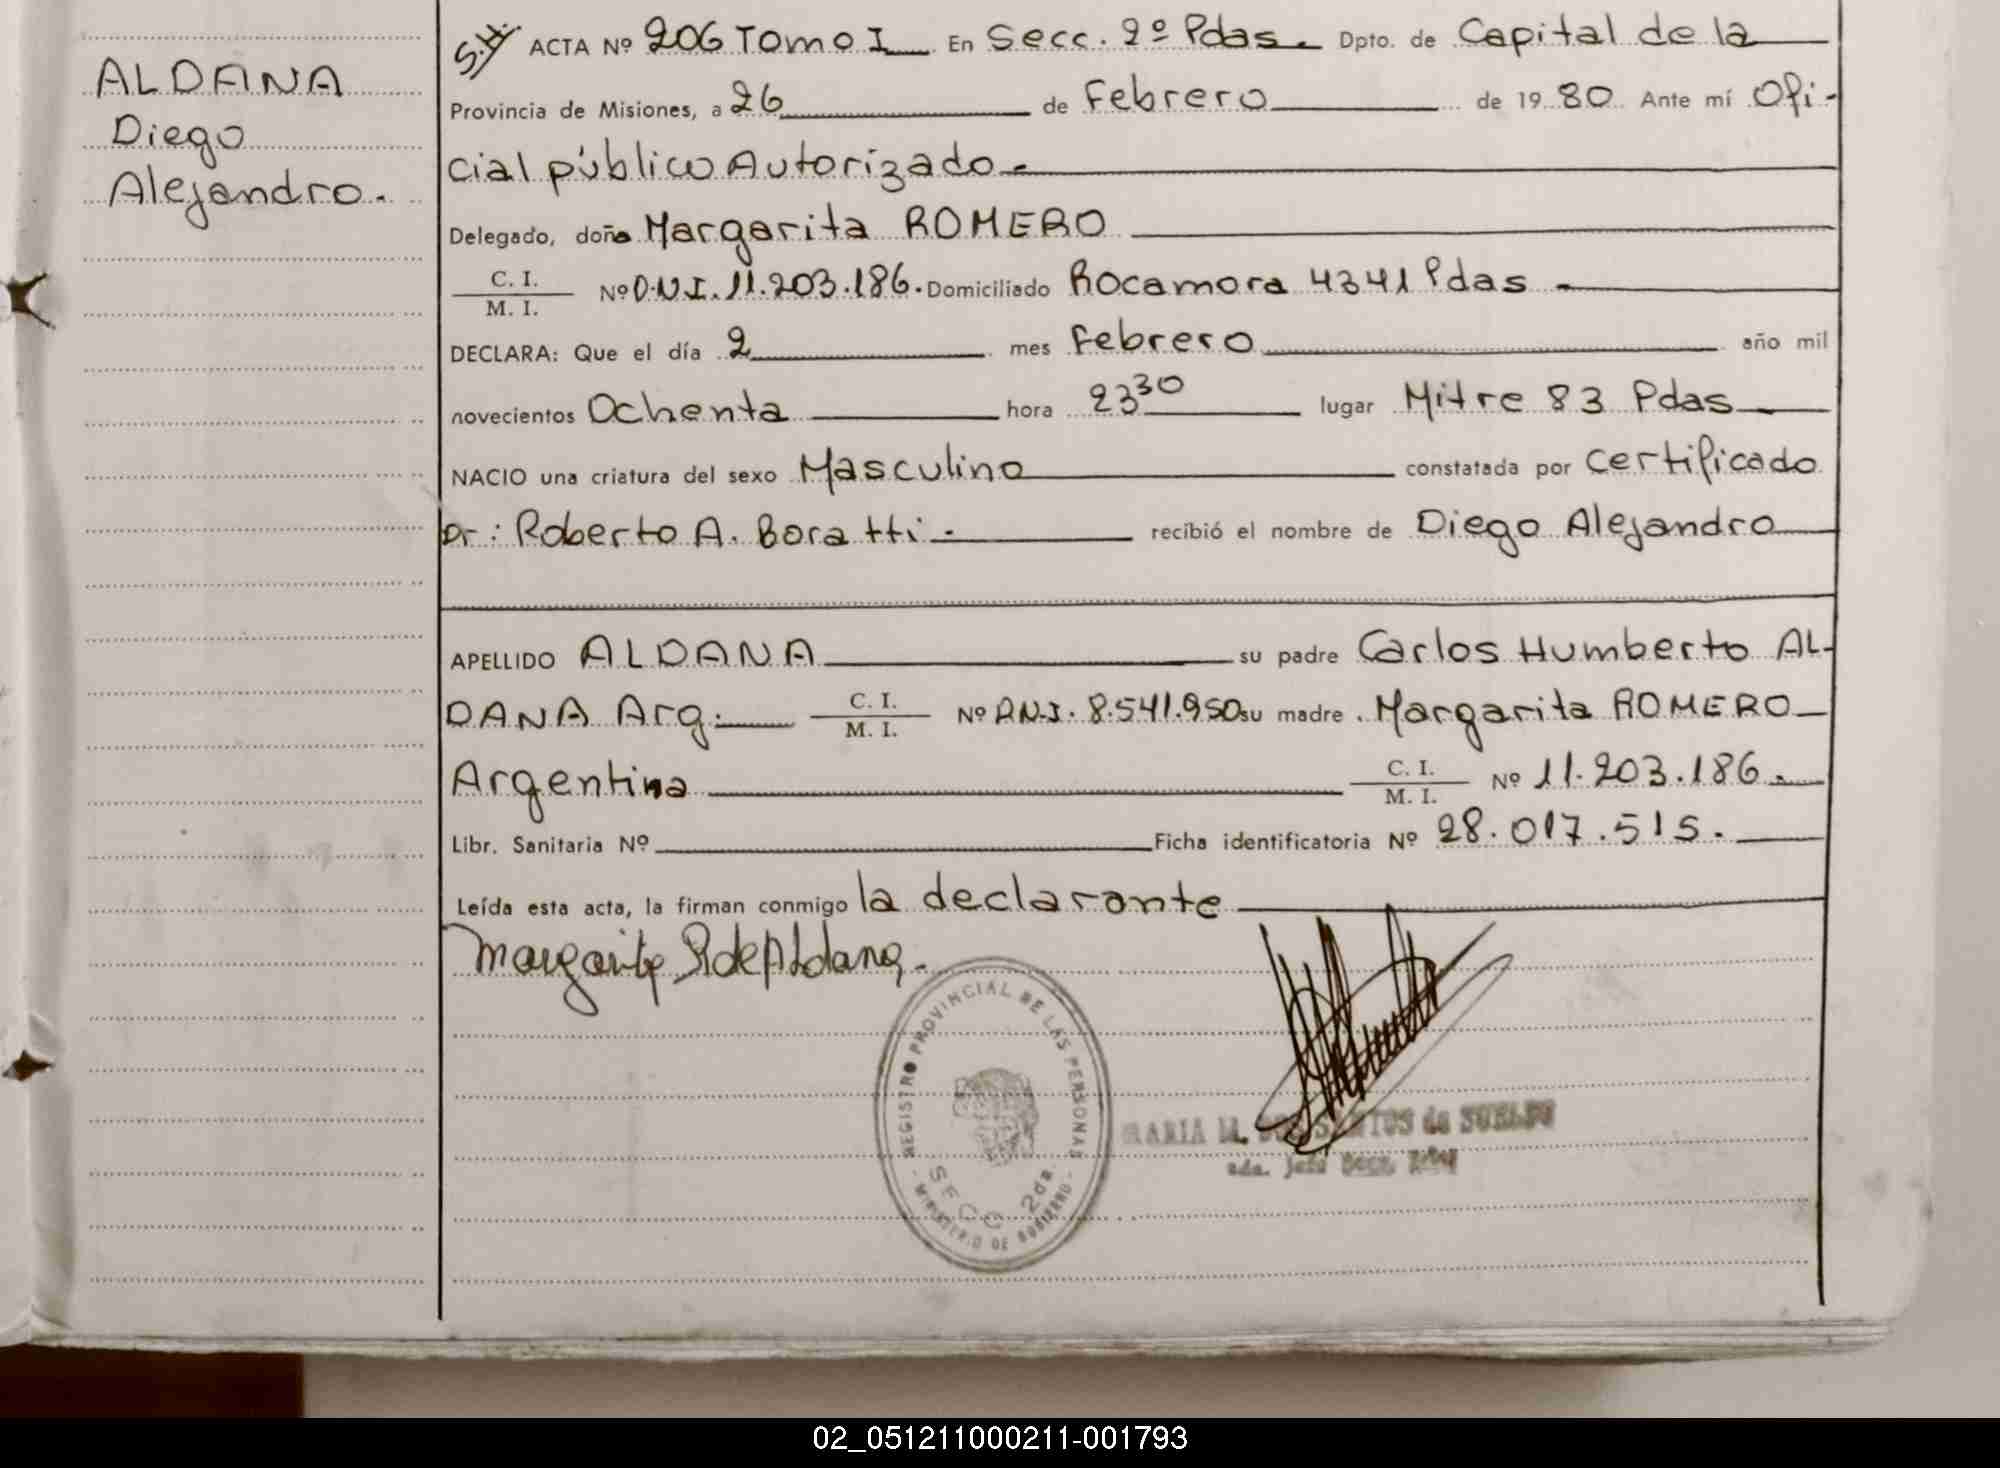 ALDANA
Diego
Alejandro.
S.H. ACTA Nº 206 Tomo I En Secc. 2º Pdas. Dpto. de Capital de la
Provincia de Misiones, a 26 de Febrero de 1980 Ante mí Ofi-
cial público Autorizado.
Delegado, doña Margarita ROMERO
C. I.
M. I.
Nº D.N.I. 11.203.186. Domiciliado Rocamora 4341 Pdas
DECLARA: Que el día 2 mes Febrero año mil
novecientos Ochenta hora 23 30 lugar Mitre 83 Pdas
NACIO una criatura del sexo Masculino constatada por Certificado
Dr: Roberto A. Boratti. recibió el nombre de Diego Alejandro
APELLIDO ALDANA su padre Carlos Humberto AL-
DANA Arg. C. I. M. I. Nº D.N.I. 8.541.950 su madre Margarita ROMERO
Argentina C. I. M. I. Nº 11.203.186.
Libr. Sanitaria Nº Ficha identificatoria Nº 28.017.515.
Leída esta acta, la firman conmigo la declarante
Margarita R de Aldana.
REGISTRO PROVINCIAL DE LAS PERSONAS
SECC 2da.
- MINISTERIO DE GOBIERNO -
MARIA M. DOS SANTOS de
02_051211000211-001793